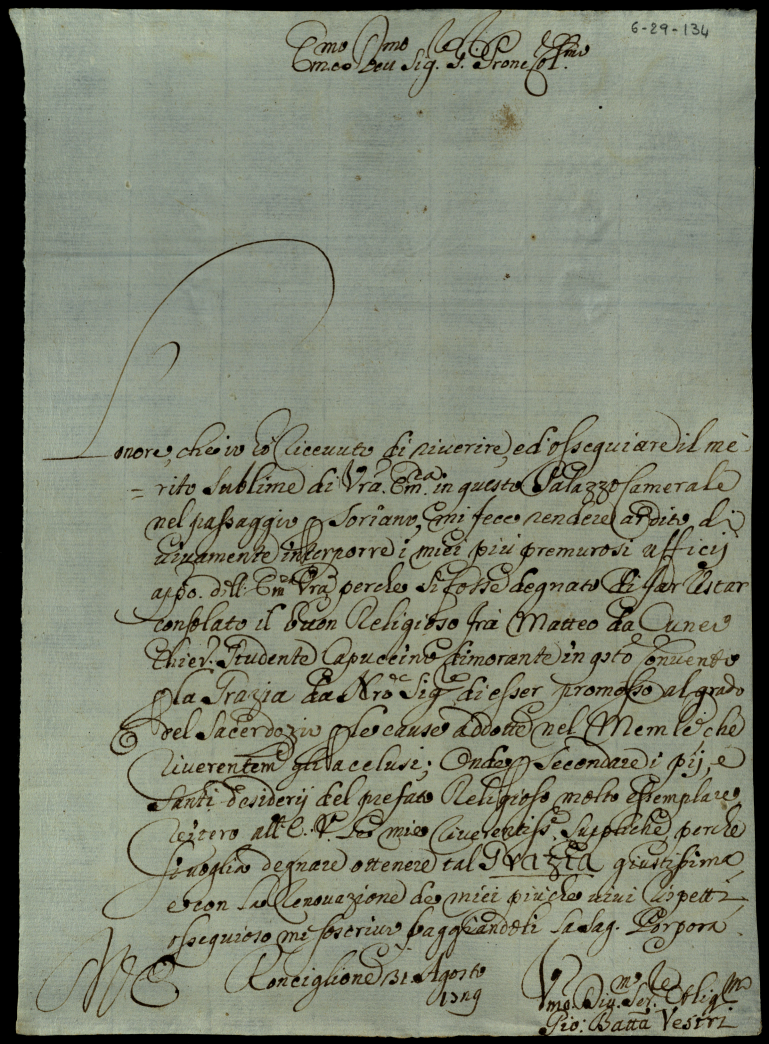 6-29-134
Emo e Rmo Sig. Sig. P.rone Col.mo
L'onore, che io hò ricevuto di riverire, ed ossequiare il me=
=rito sublime di Vrã. Em.za in questo Palazzo Camerale
nel passaggio p Soriano, mi fece rendere ardito di
vivamente interporre i miei più premurosi ufficij
appo. dell. Em. Vrã perche si fosse degnato di far restar
consolato il buon Religioso frà Matteo da Cuneo
Chier. Studente Capuccino dimorante in q.sto Convento
p la Grazia da N.ro Sig.e di esser promosso al grado
del Sacerdozio p le cause addotte nel Mem.le che
riverentem.e gli acclusi; Onde p secondare i pij, e
Santi desiderij del prefato Religioso molto essemplare
reitero all' E. V. le mie riverentiss.e suppliche, perche
si voglia degnare ottenere tal Grazia giustissima
e con la renovazione de miei più che vivi rispetti
ossequioso mi soscrivo, baggiandoli la Sag. Porpora
Ronciglione 31 Agosto
Vmo Div. Ser. Oblig.mo
Gio: Battã Vestri